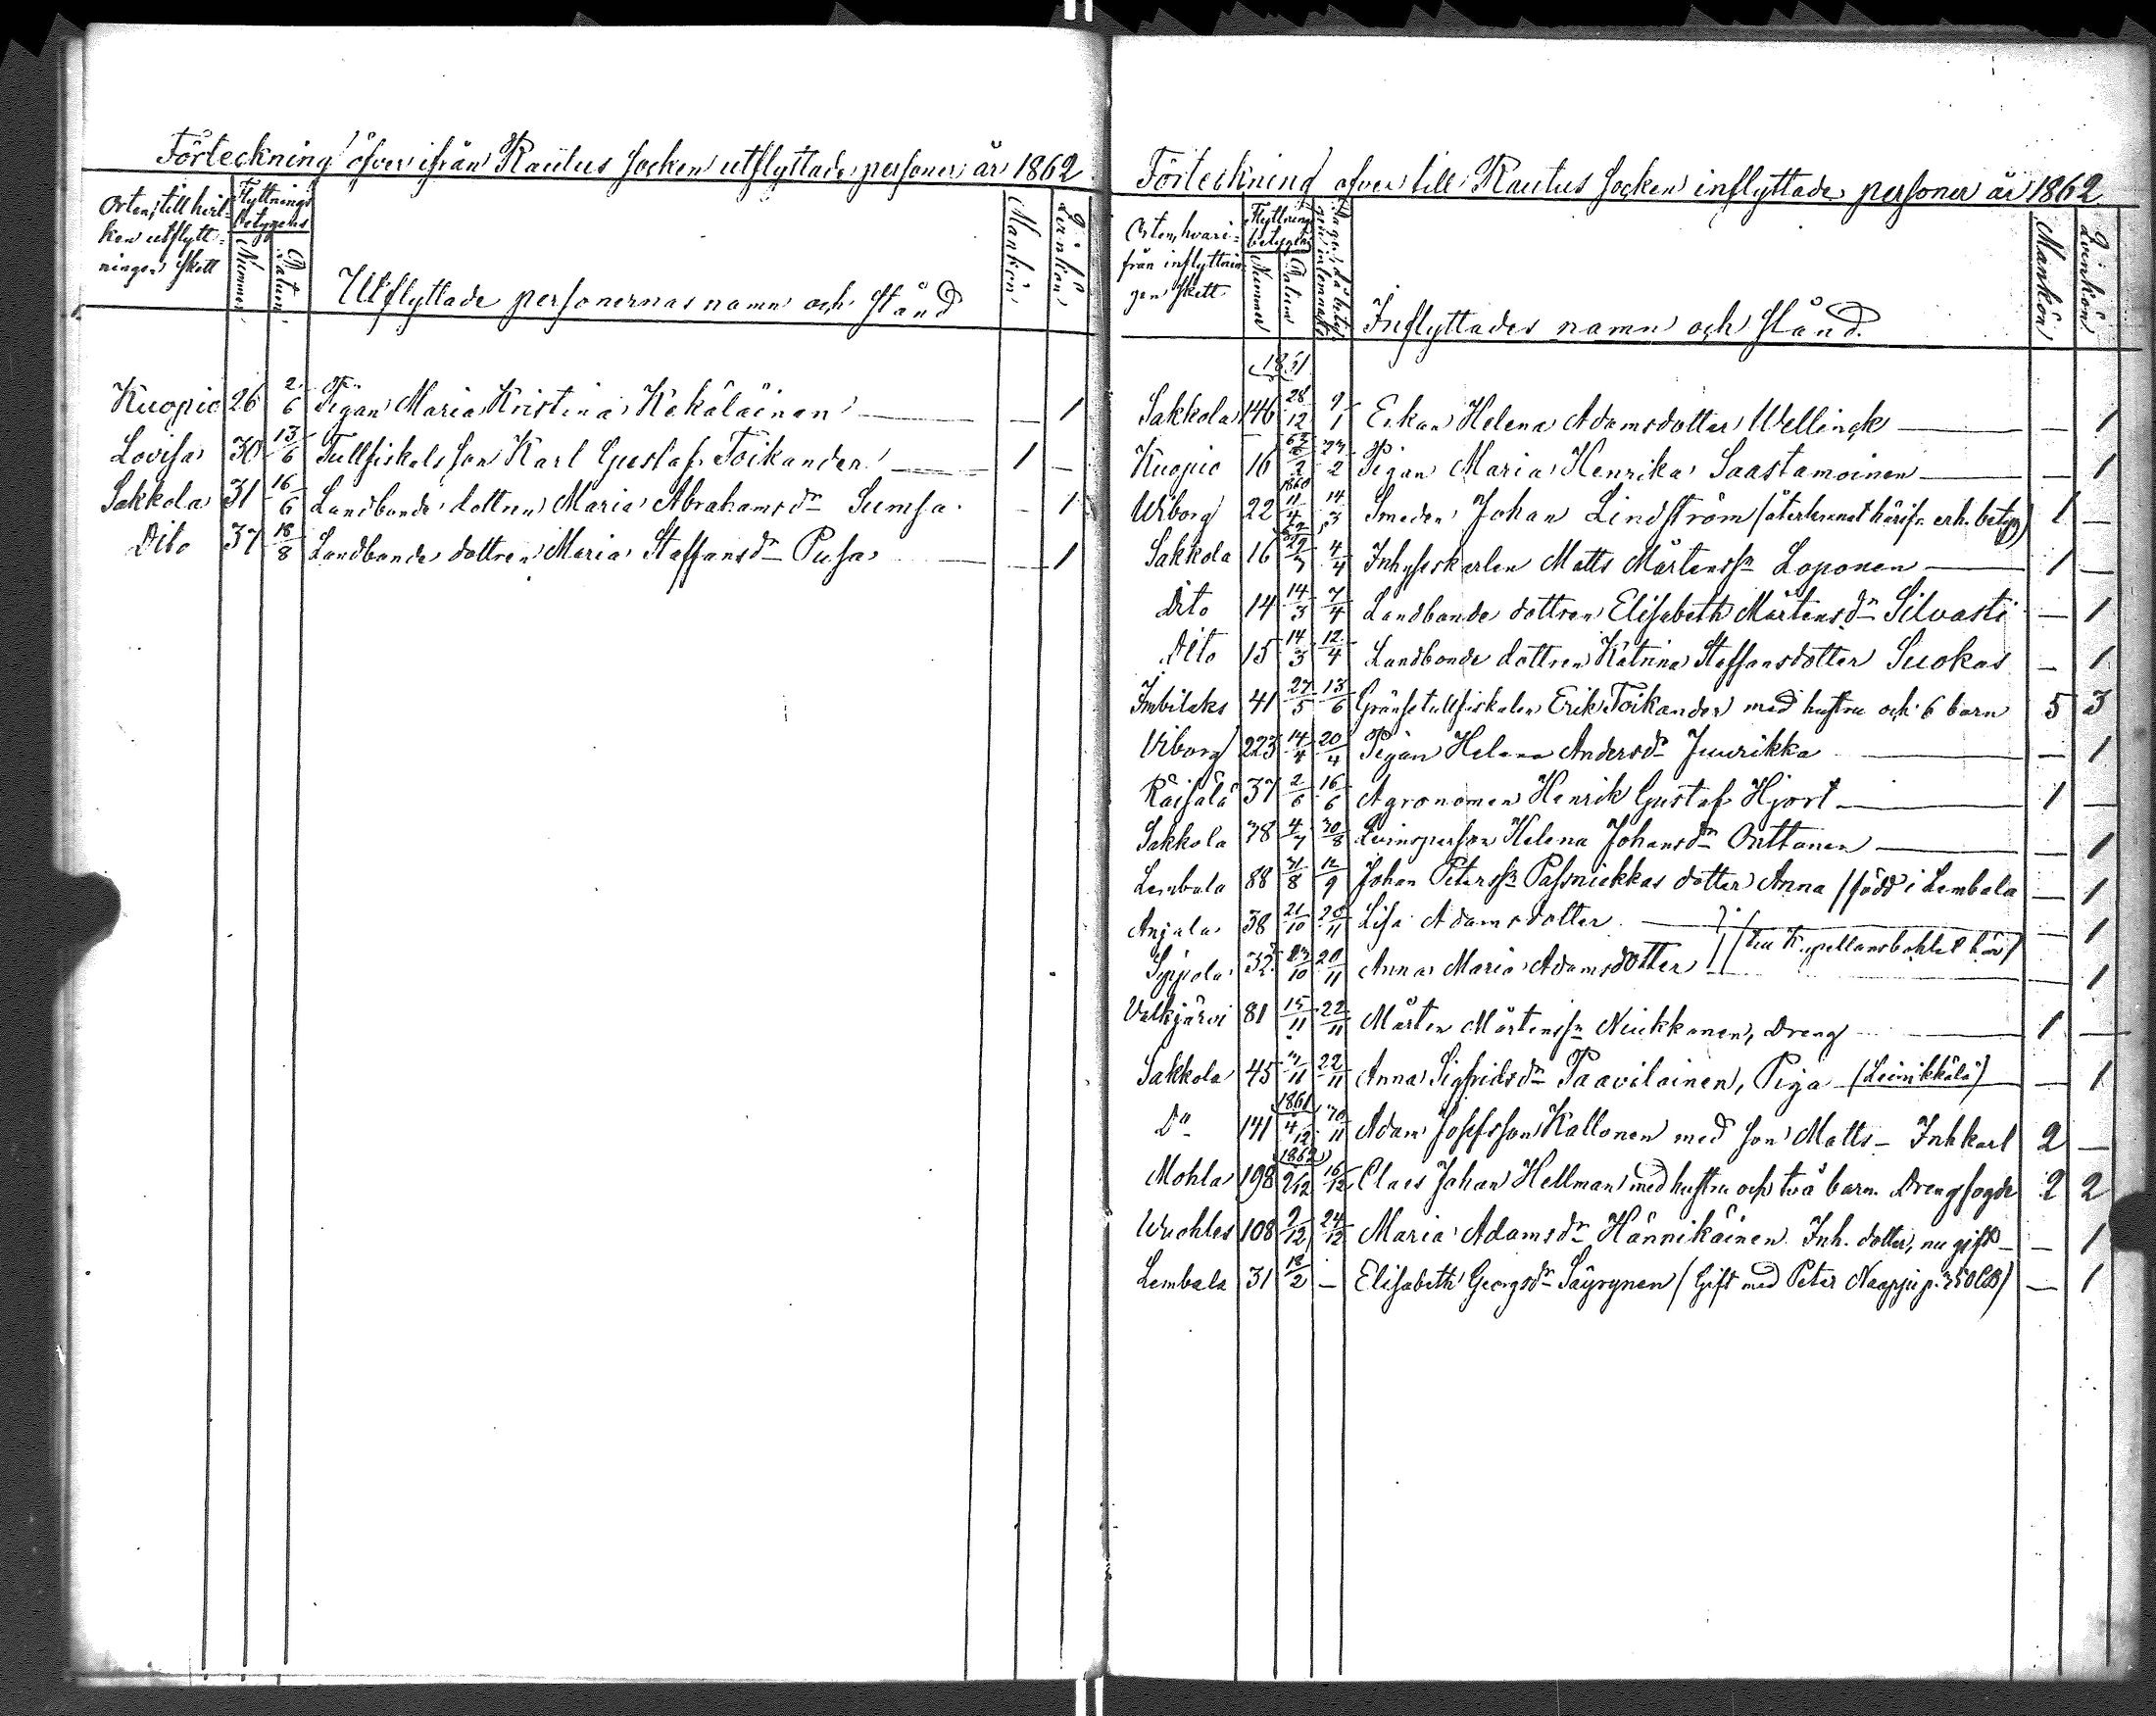 Förteckning öfver ifrån Rautus Socken utflyttade personer år 1862
Orten, till hvil-
ken utflytt-
ningen skett
Flyttnings
betygens
Nummer
Datum
Utflyttade personernas namn och stånd
Mankön
Qvinkön
Kuopio 26 2/6 Pigan Maria Kristina Kekäläinen — — 1
Lovisa 30 13/6 Tullfiskals son Karl Gustaf Toikander — 1 —
Sakkola 31 16/6 Landbonde dottren Maria Abrahamsdr Sumsa - 1
Dito 37 18/8 Landbonde dottren Maria Staffansdr Pusa — — 1
Förteckning öfver till Rautus Socken inflyttade personer år 1862
Orten, hvari-
från inflyttnin-
gen skett
Flyttnings
betygens
Nummer
Datum
Inflyttades namn och stånd.
Mankön
Qvinkön
Sakkola 146 28/12 9/1 Enkan Helena Adamsdotter Wellinck — — 1
Kuopio 16 Pigan Maria Henrika Saastamoinen — — 1
1860
Wiborg 22 11/4 14/3 Smeden Johan Lindström (återkommet härifr. erh. betyg) 1 —
Sakkola 16 4/4 Inhyseskarlen Matts Mårtenssn Loponen — 1 —
Dito 14 14/3 7/4 Landbonde dottren Elisabeth Mårtensdr Silvasti — 1
Dito 15 14/3 12/4 Landbonde dottren Katrina Staffansdotter Suokas — 1
Imbilaks 41 27/5 13/6 Gränsetullfiskalen Erik Toikander med hustru och 6 barn 5 3
Viborg 223 14/4 20/4 Pigan Helena Andersdr Juurikka — 1
Räisälä 37 2/6 16/6 Agronomen Henrik Gustaf Hjort — 1 —
Sakkola 38 4/7 30/8 Qvinsperson Helena Johansdr Onttonen — — 1
Lembala 88 31/8 12/9 Johan Peterssn Passniekkas dotter Anna (född i Lembala — 1
Anjala 38 21/10 20/11 Lisa Adamsdotter — — 1
(till Kapellansbohlet här)
Sippola 32 23/10 20/11 Anna Maria Adamsdotter — 1
Valkjärvi 81 15/11 22/11 Mårten Mårtenssn Niukkanen, Dreng — 1 —
Sakkola 45 22/11 Anna Sigfridsdr Paavilainen, Piga — 1
1861
Do 141 4/12 30/11 Adam Josefsson Kallonen med son Matts - Inhkarl 2 —
1862
Mohla 198 9/12 16/12 Claes Johan Hellman med hustru och två barn. Drengfogde 2 2
Wuohles 108 9/12 24/12 Maria Adamsdr Hännikäinen Inh. dotter, nu gift — — 1
Lembala 31 18/2 — Elisabeth Georgsdr Säyrynen (Gift med Peter Naappi p. 350 CB) — 1